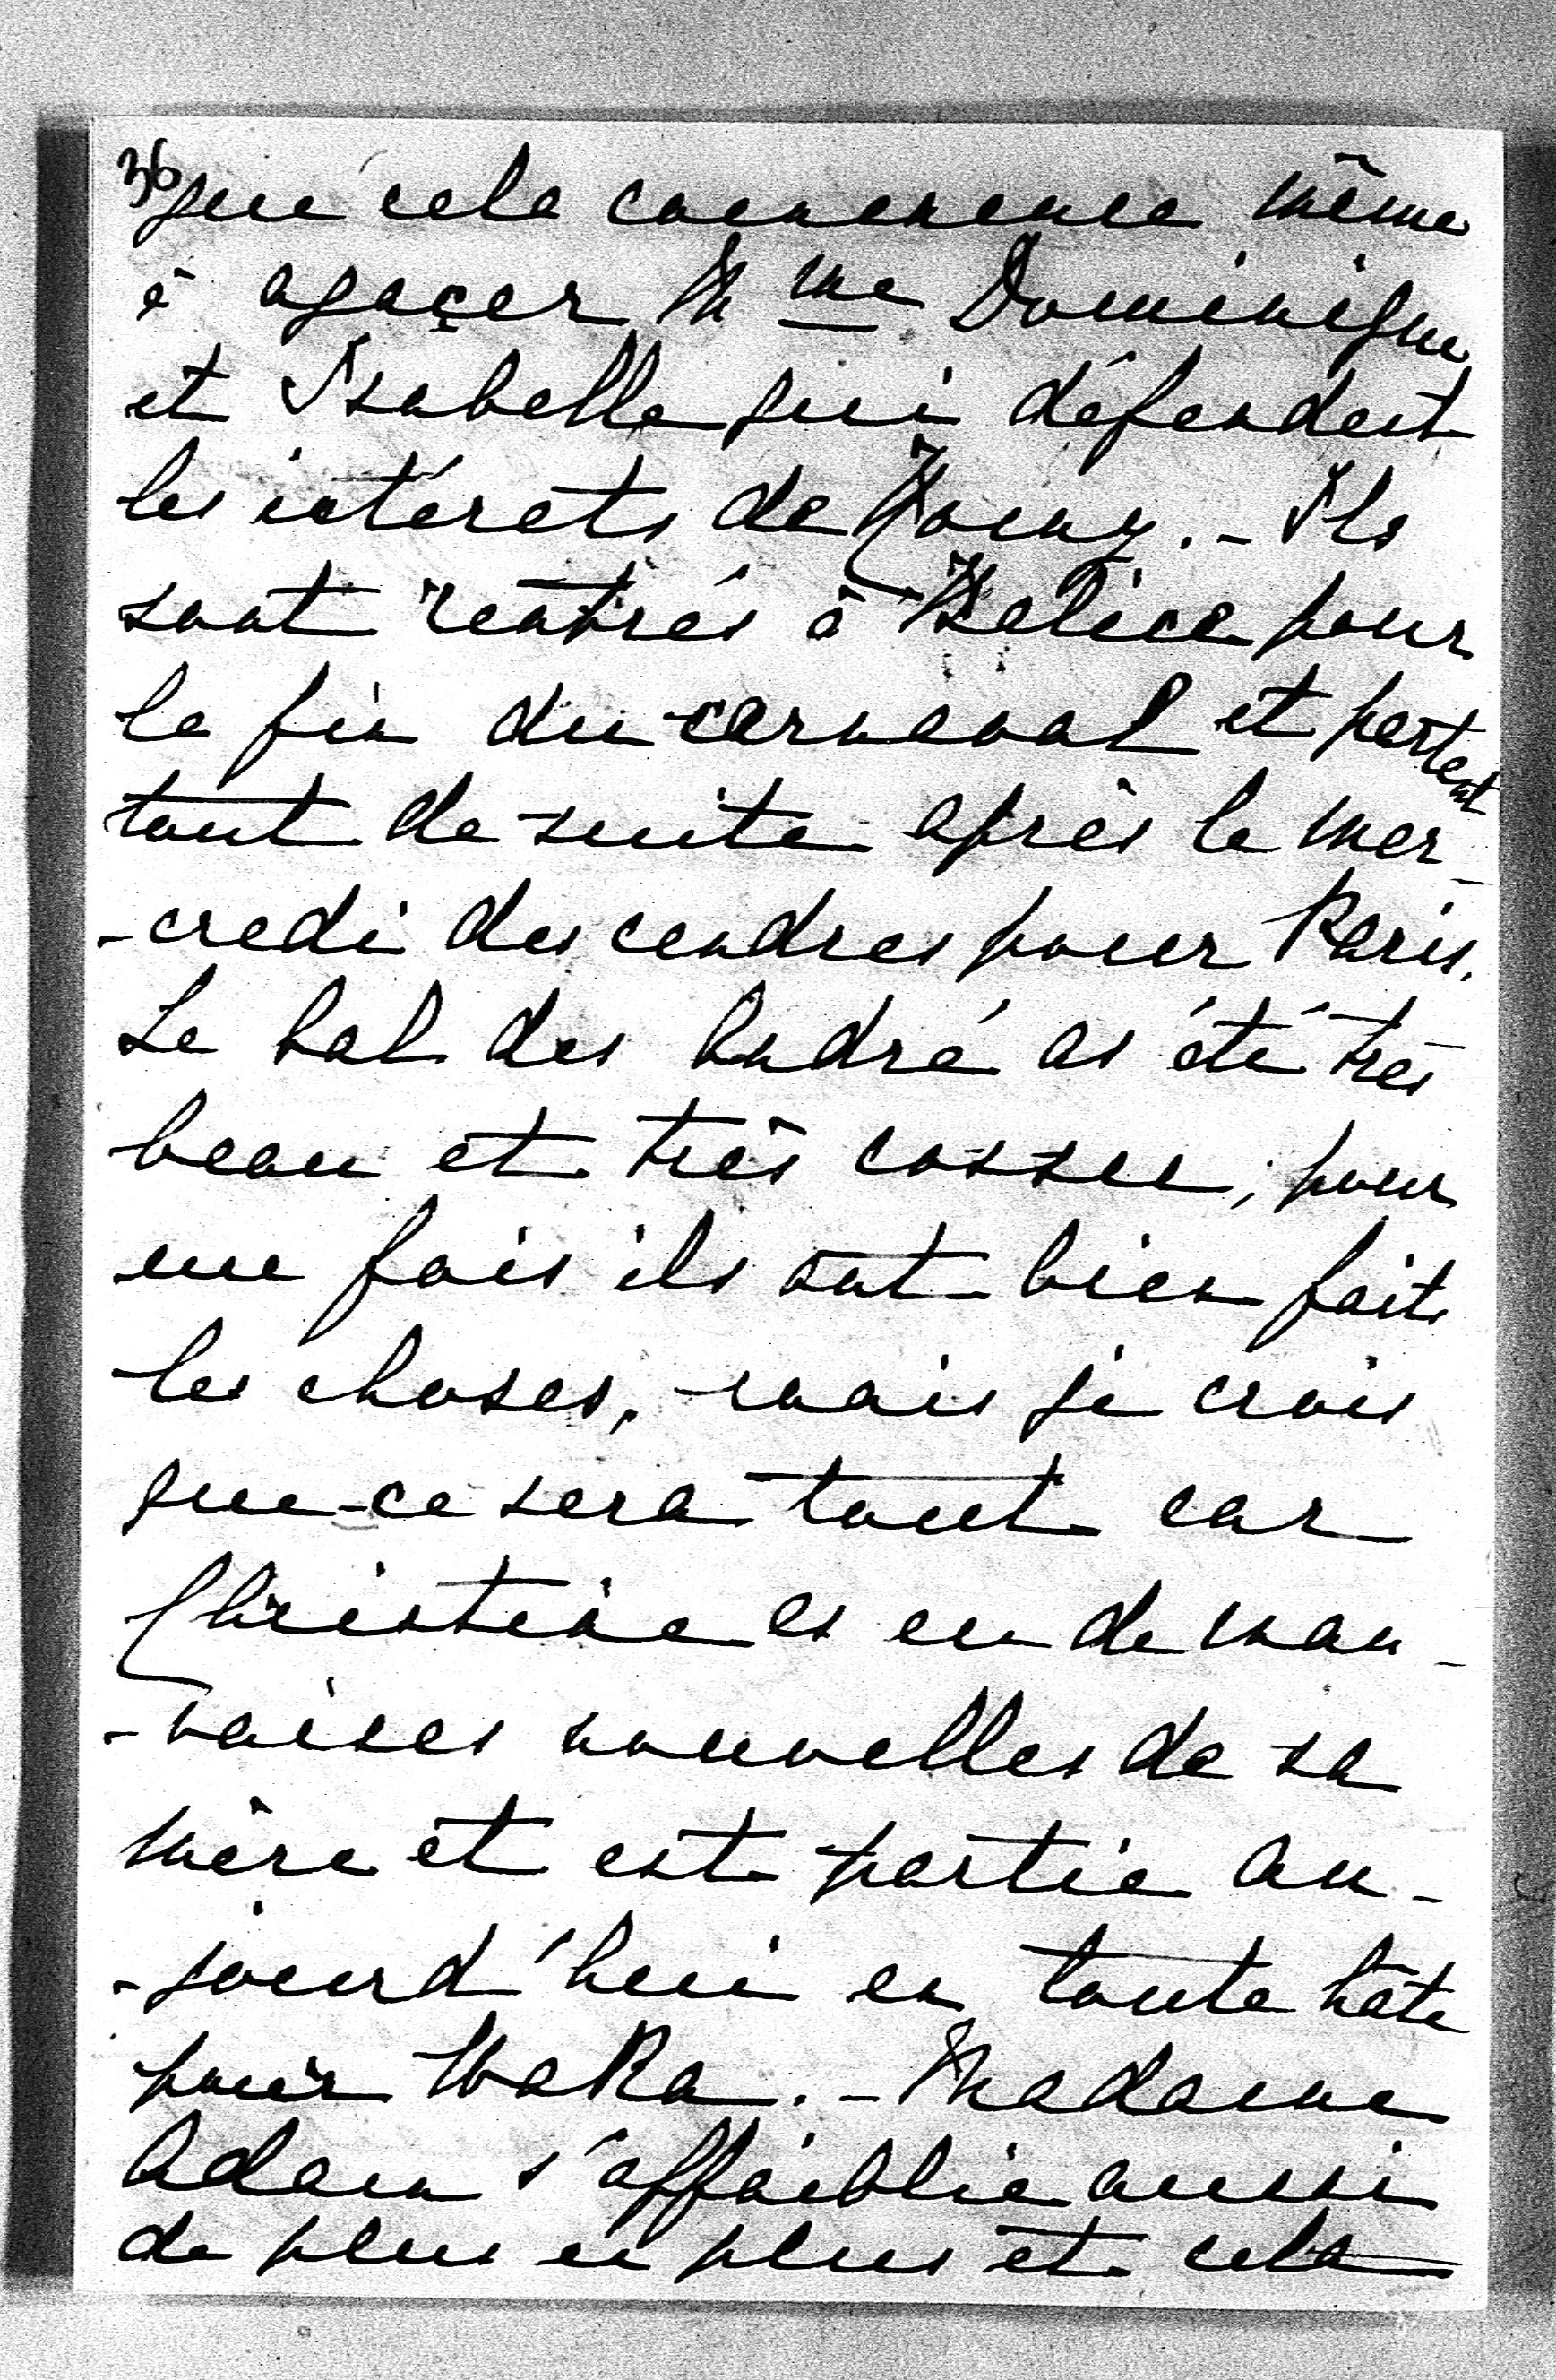 36
que cela commence même
à agaçer Mme Dominique
et Isabelle qui défendent
les intérets de Jomy. - Ils
sont rentrés à Félice pour
la fin du carnaval et partent
tout de suite après le mer-
-credi des cendres pour Paris.
Le bal des André as été très
beau et très cossu, pour
une fois ils ont bien faits
les choses, mais je crois
que ce sera tout car
Christine as eu de mau-
-vaises nouvelles de sa
mère et est partie au-
-jourd'hui en toute hâte
pour Waka. - Madame
Adam s'affaiblie aussi
de plus en plus et cela